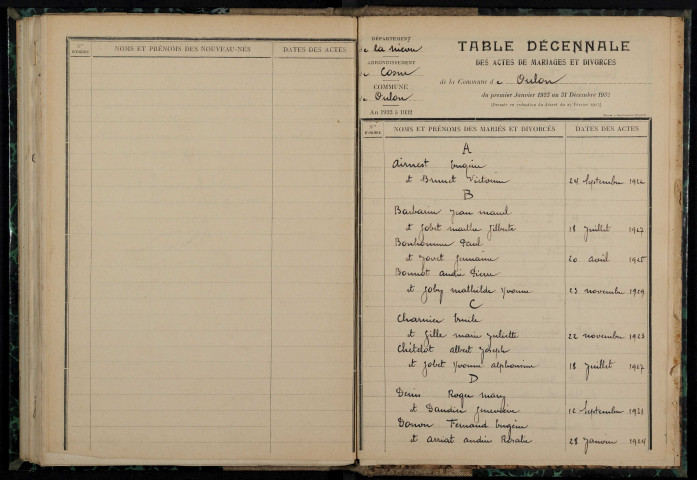 N° D'ORDRE
NOMS ET PRÉNOMS DES NOUVEAU-NÉS
DATES DES ACTES
DÉPARTEMENT
de la nièvre
ARRONDISSEMENT
de Cosne
COMMUNE
de Oulon
An 1923 à 1932
TABLE DÉCENNALE
DES ACTES DE MARIAGES ET DIVORCES
de la Commune d e Oulon
du premier Janvier 1923 au 31 Décembre 1932
N° D'ORDRE
NOMS ET PRÉNOMS DES MARIÉS ET DIVORCÉS
DATES DES ACTES
A
Eugène
et Brunet Victorine 24 Septembre 1924
B
Barbarin Jean
et Jobet marthe Gilberte 18 juillet 1927
Bonhomme Paul
et Jovet Germaine 20 avril 1925
Bonnot andré Pierre
et Joby mathilde Yvonne 23 novembre 1929
C
Charrier Emile
et Gille marie Juliette 22 novembre 1923
Chételot albert Joseph
et Jobet Yvonne alphonsine 18 juillet 1927
D
Denis Roger
et Daudin Geneviève 12 Septembre 1931
Fernand Eugène
et Rosalie 28 Janvier 1924